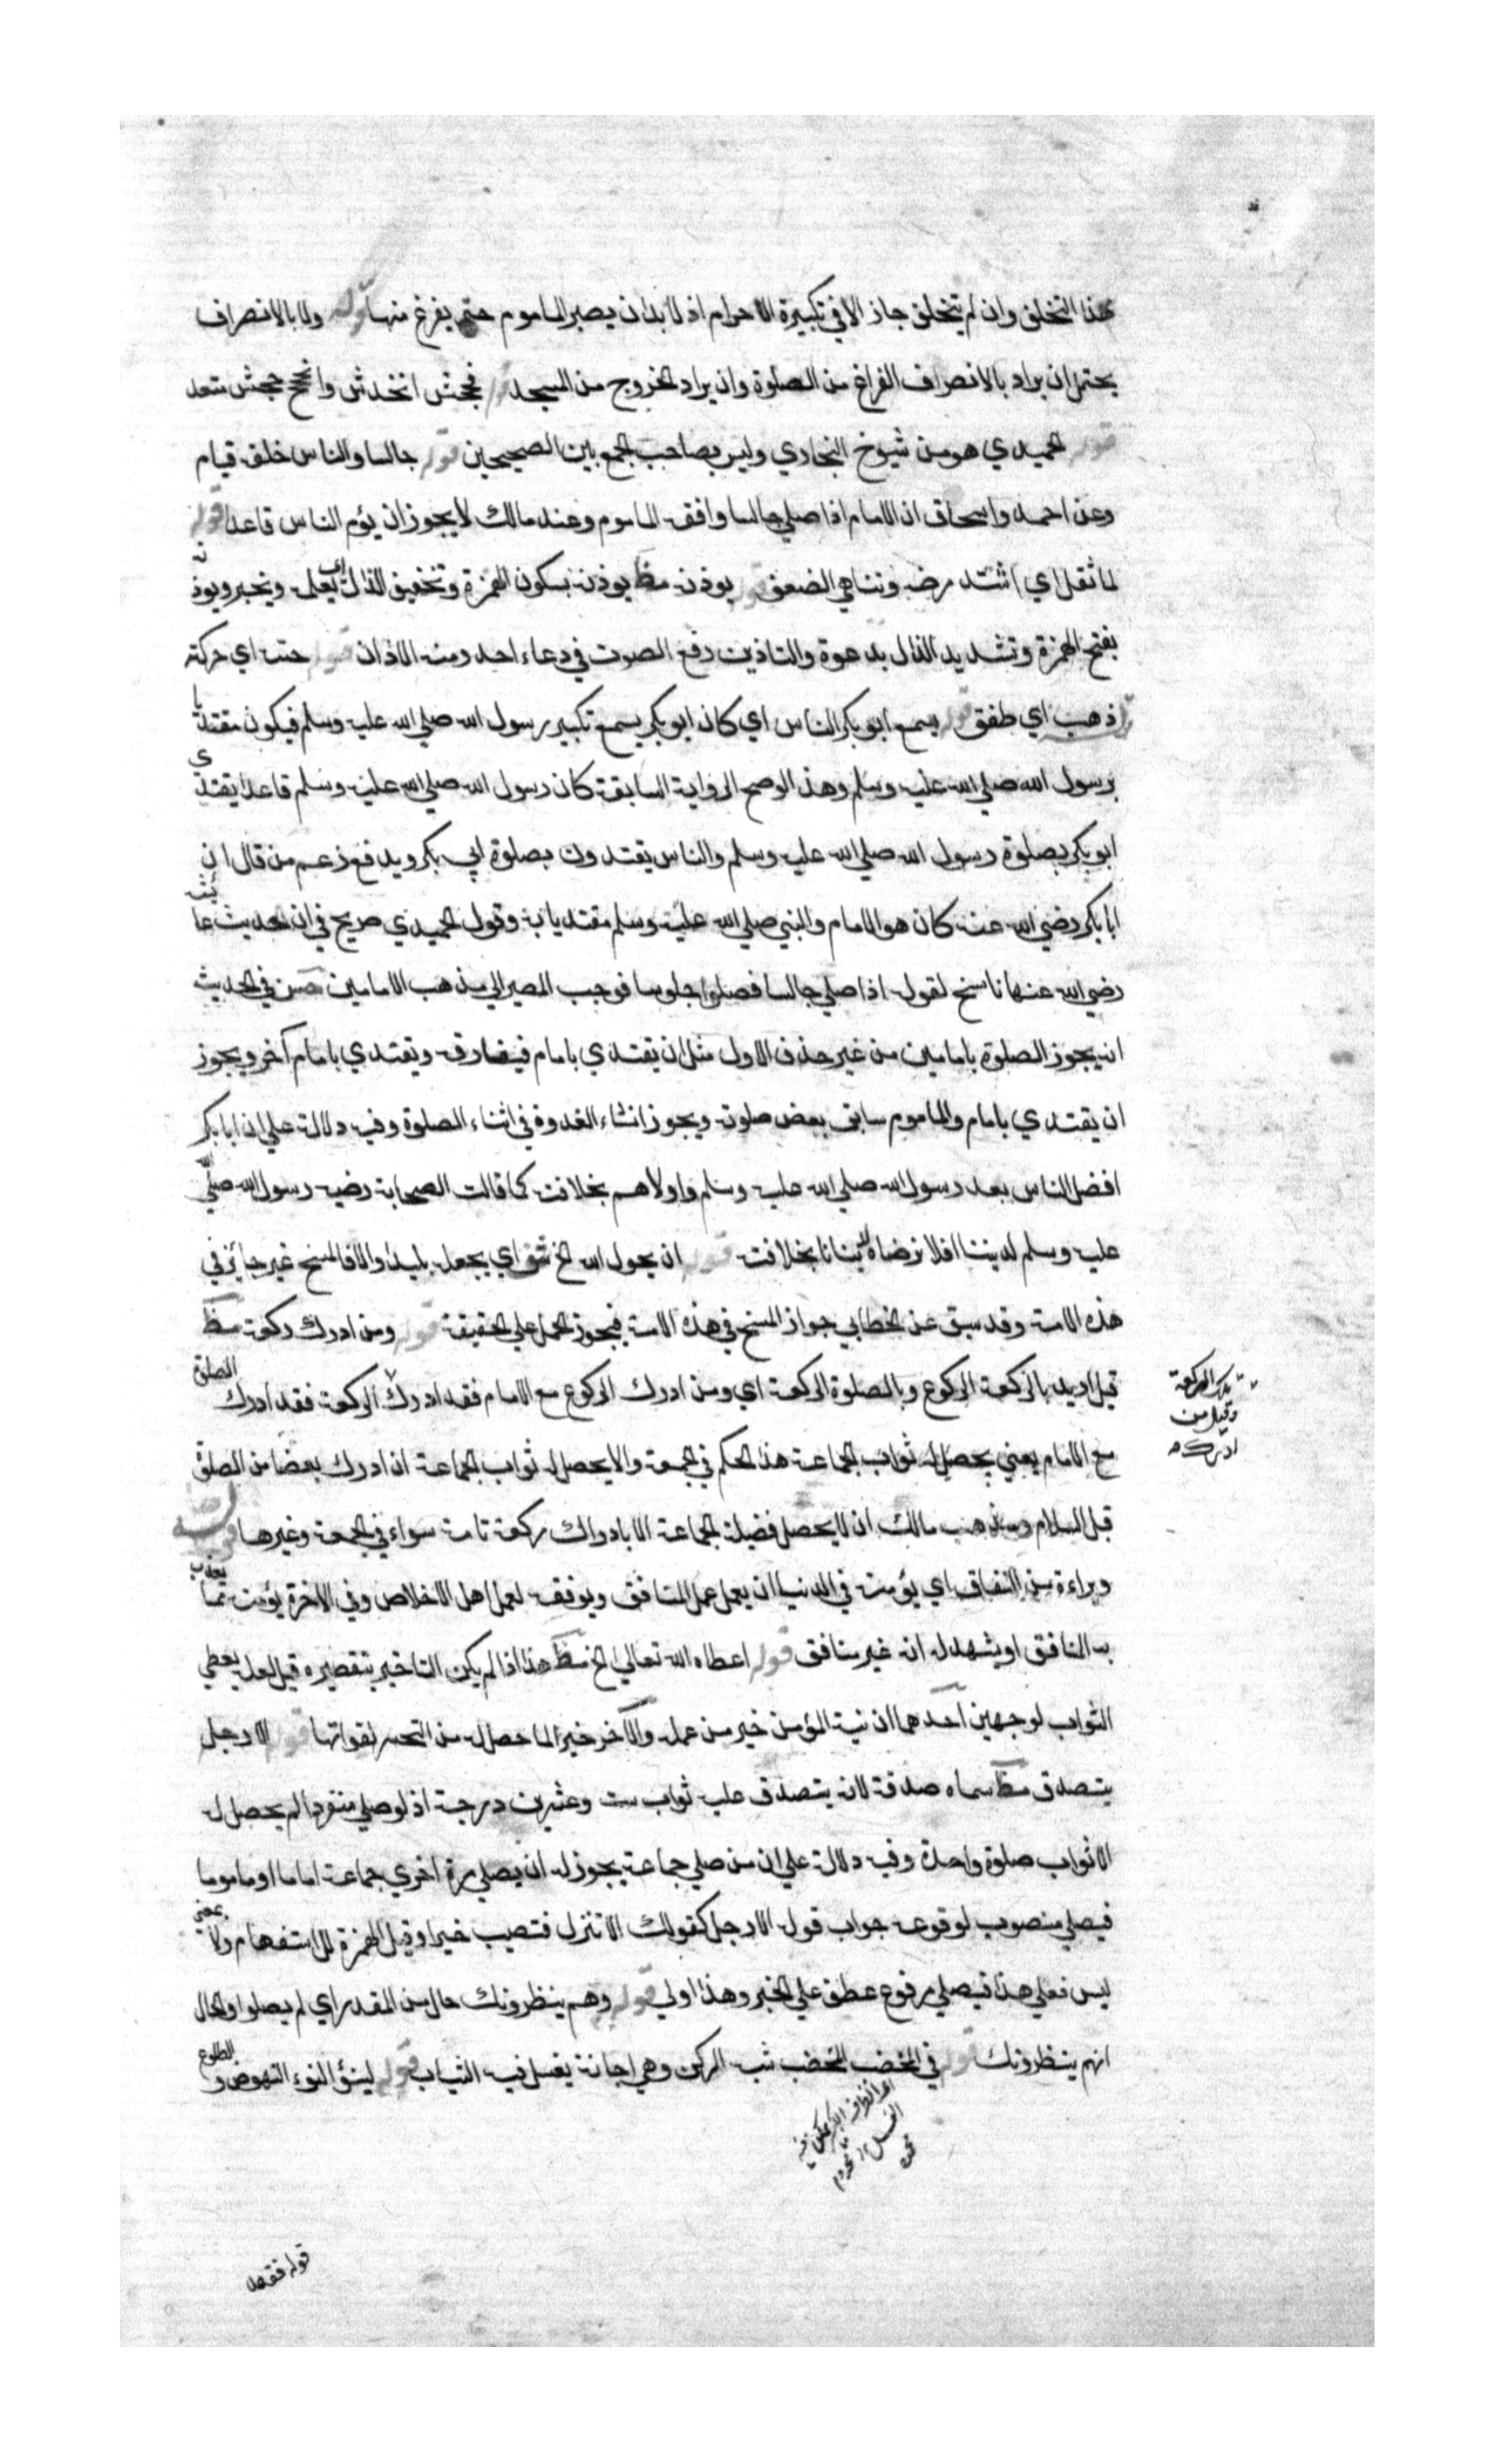 هذا التخلف وان لم يتخلف جاز الا في تكبيرة الاحرام اذ لا بد ان يصبر الماموم حتى يفرغ منها قوله ولا بالانصراف
يحتمل ان يراد بالانصراف الفراغ من الصلوة وان يراد الخروج من المسجد قوله فجحش انخدش وانجحج جحش متعد
قوله الحميدي هو من شيوخ البخاري وليس بصاحب الجمع بين الصحيحين قوله جالسا والناس خلفه قيام
وعن احمد واسحاق ان الامام اذا صلي جالسا وافقه الماموم وعند مالك لا يجوز ان يؤم الناس قاعدا قوله
لما ثقل اي اشتد مرضه وتناهي الضعف قوله يوذنه مظ يوذنه بسكون الهمزة وتخفيف الذال اي يعلمه ويخبره ويوذنه
بفتح الهمزة وتشديد الذال يدعوه والتاذين رفع الصوت في دعاء احد ومنه الاذان قوله حسه اي حركته
قوله ذهب اي طفق قوله يسمع ابو بكر الناس اي كان ابو بكر يسمع تكبير رسول الله صلي الله عليه وسلم فيكون مقتديا
برسول الله صلي الله عليه وسلم وهذا لوصح الرواية السابقة كان رسول الله صلي الله عليه وسلم قاعدا يقتدي
ابو بكر بصلوة رسول الله صلي الله عليه وسلم والناس يقتدون بصلوة ابي بكر ويدفع زعم من قال ان
ابا بكر رضي الله عنه كان هو الامام والنبي صلي الله عليه وسلم مقتديا به وقول الحميدي صريح في ان حديث عايشة
رضي الله عنها ناسخ لقوله اذا صلي جالسا فصلوا جلوسا فوجب المصير الي مذهب الامامين حسن في الحديث
انه يجوز الصلوة بامامين من غير حذف الاول مثل ان يقتدي بامام فيفارقه ويقتدي بامام آخر ويجوز
ان يقتدي بامام والماموم سابق بعض صلوته ويجوز انشاء القدوة في اثناء الصلوة وفيه دلالة علي ان ابا بكر
افضل الناس بعد رسول الله صلي الله عليه وسلم واولاهم بخلافته كما قالت الصحابة رضيه رسول الله صلي الله
عليه وسلم لديننا افلا نرضاه لدنيانا بخلافته قوله ان يحول الله الخ شف اي يجعله بليدا والا فالمسخ غير جائز في
هذه الامة وقد سبق عن الخطابي جواز المسخ في هذه الامة فيجوز الحمل علي الحقيقة قوله ومن ادرك ركعة مظ
قيل اريد بالركعة الركوع وبالصلوة الركعة اي ومن ادرك الركوع مع الامام فقد ادرك الركعة فقد ادرك الصلوة
تلك الركعة
وقيل من
ادرك
مع الامام يعني يحصل له ثواب الجماعة هذا الحكم في الجمعة والا يحصل له ثواب الجماعة ان ادرك بعضا من الصلوة
قبل السلام ومذهب مالك انه لا يحصل فضيلة الجماعة الا بادراك ركعة تامة سواء في الجمعة وغيرها قوله
وبراءة من النفاق اي يؤمنه في الدنيا ان يعمل عمل المنافق ويوفقه لعمل اهل الاخلاص وفي الاخرة يؤمنه مما يعذب
به المنافق او يشهد له انه غير منافق قوله اعطاه الله تعالي الخ مظ هذا اذا لم يكن التاخير بتقصيره قيل لعله يعطي
الثواب لوجهين احدهما ان نية المؤمن خير من عمله والآخر خيرا لما حصل له من التحسر لفواتها قوله الا رجل
يتصدق مظ سماه صدقة لانه يتصدق عليه ثواب ست وعشرين درجة اذ لو صلي منفردا لم يحصل له
الا ثواب صلوة واحدة وفيه دلالة علي ان من صلي جماعة يجوز له ان يصلي مرة اخري جماعة اماما او ماموما
فيصلي منصوب لوقوعه جواب قوله الا رجل كقولك الا تنزل فتصيب خيرا وقيل الهمزة للاستفهام ولا بمعنى
ليس فعلي هذا فيصلي مرفوع عطف علي الخبر وهذا اولي قوله وهم ينظرونك حال من المقدر اي لم يصلوا والحال
انهم ينظرونك قوله في المخضب المخضب شبه الركن وهي اجانة يغسل فيه الثياب قوله لينؤ النوء النهوض والطلوع
قوله فقعد